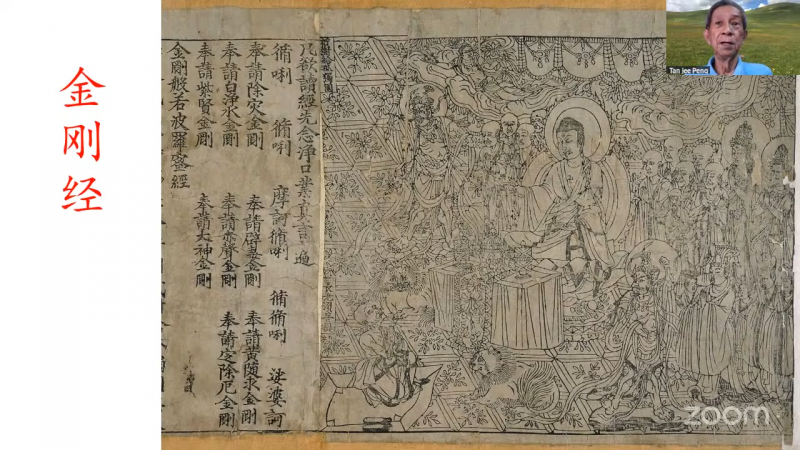 金刚经
凡欲讀經先念淨口業真言一遍
脩唎 脩唎 摩訶脩唎 脩脩唎 娑婆訶
奉請除灾金剛 奉請辟毒金剛 奉請黃隨求金剛
奉請白淨水金剛 奉請赤聲金剛 奉請定除厄金剛
奉請紫賢金剛 奉請大神金剛
金剛般若波羅蜜經
Tan Jee Peng
zoom